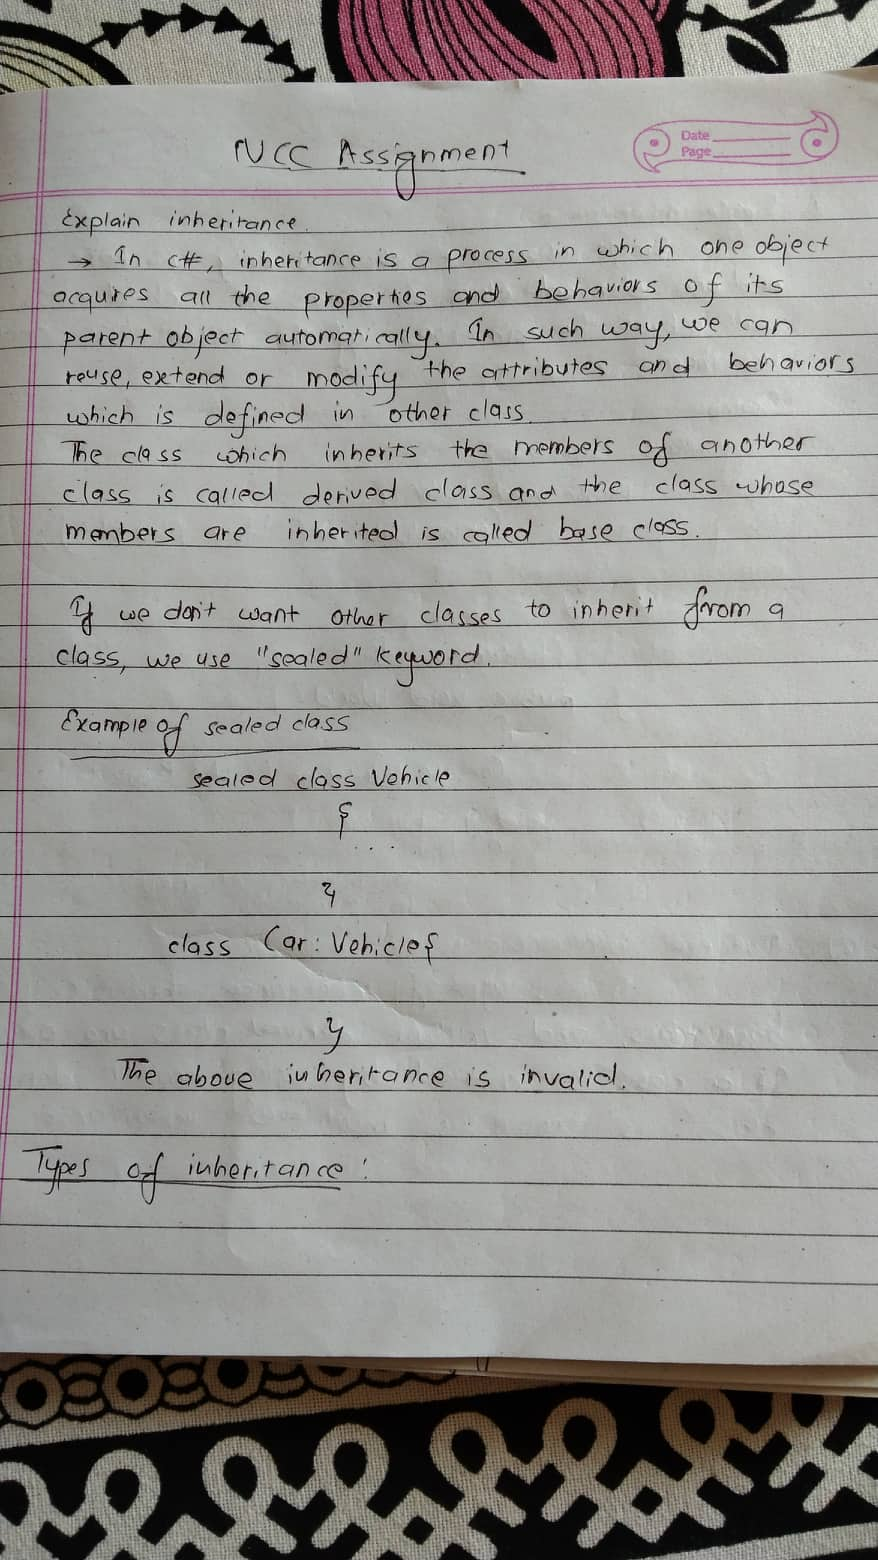 NCC Assignment
Date
Page
Explain inheritance.
→ In C#, inheritance is a process in which one object
acquires all the properties and behaviors of its
parent object automatically. In such way, we can
reuse, extend or modify the attributes and behaviors
which is defined in other class.
The class which inherits the members of another
class is called derived class and the class whose
members are inherited is called base class.
If we don't want other classes to inherit from a
class, we use "sealed" keyword.
Example of sealed class
sealed class Vehicle
{
...
}
class Car : Vehicle {
}
The above inheritance is invalid.
Types of inheritance :